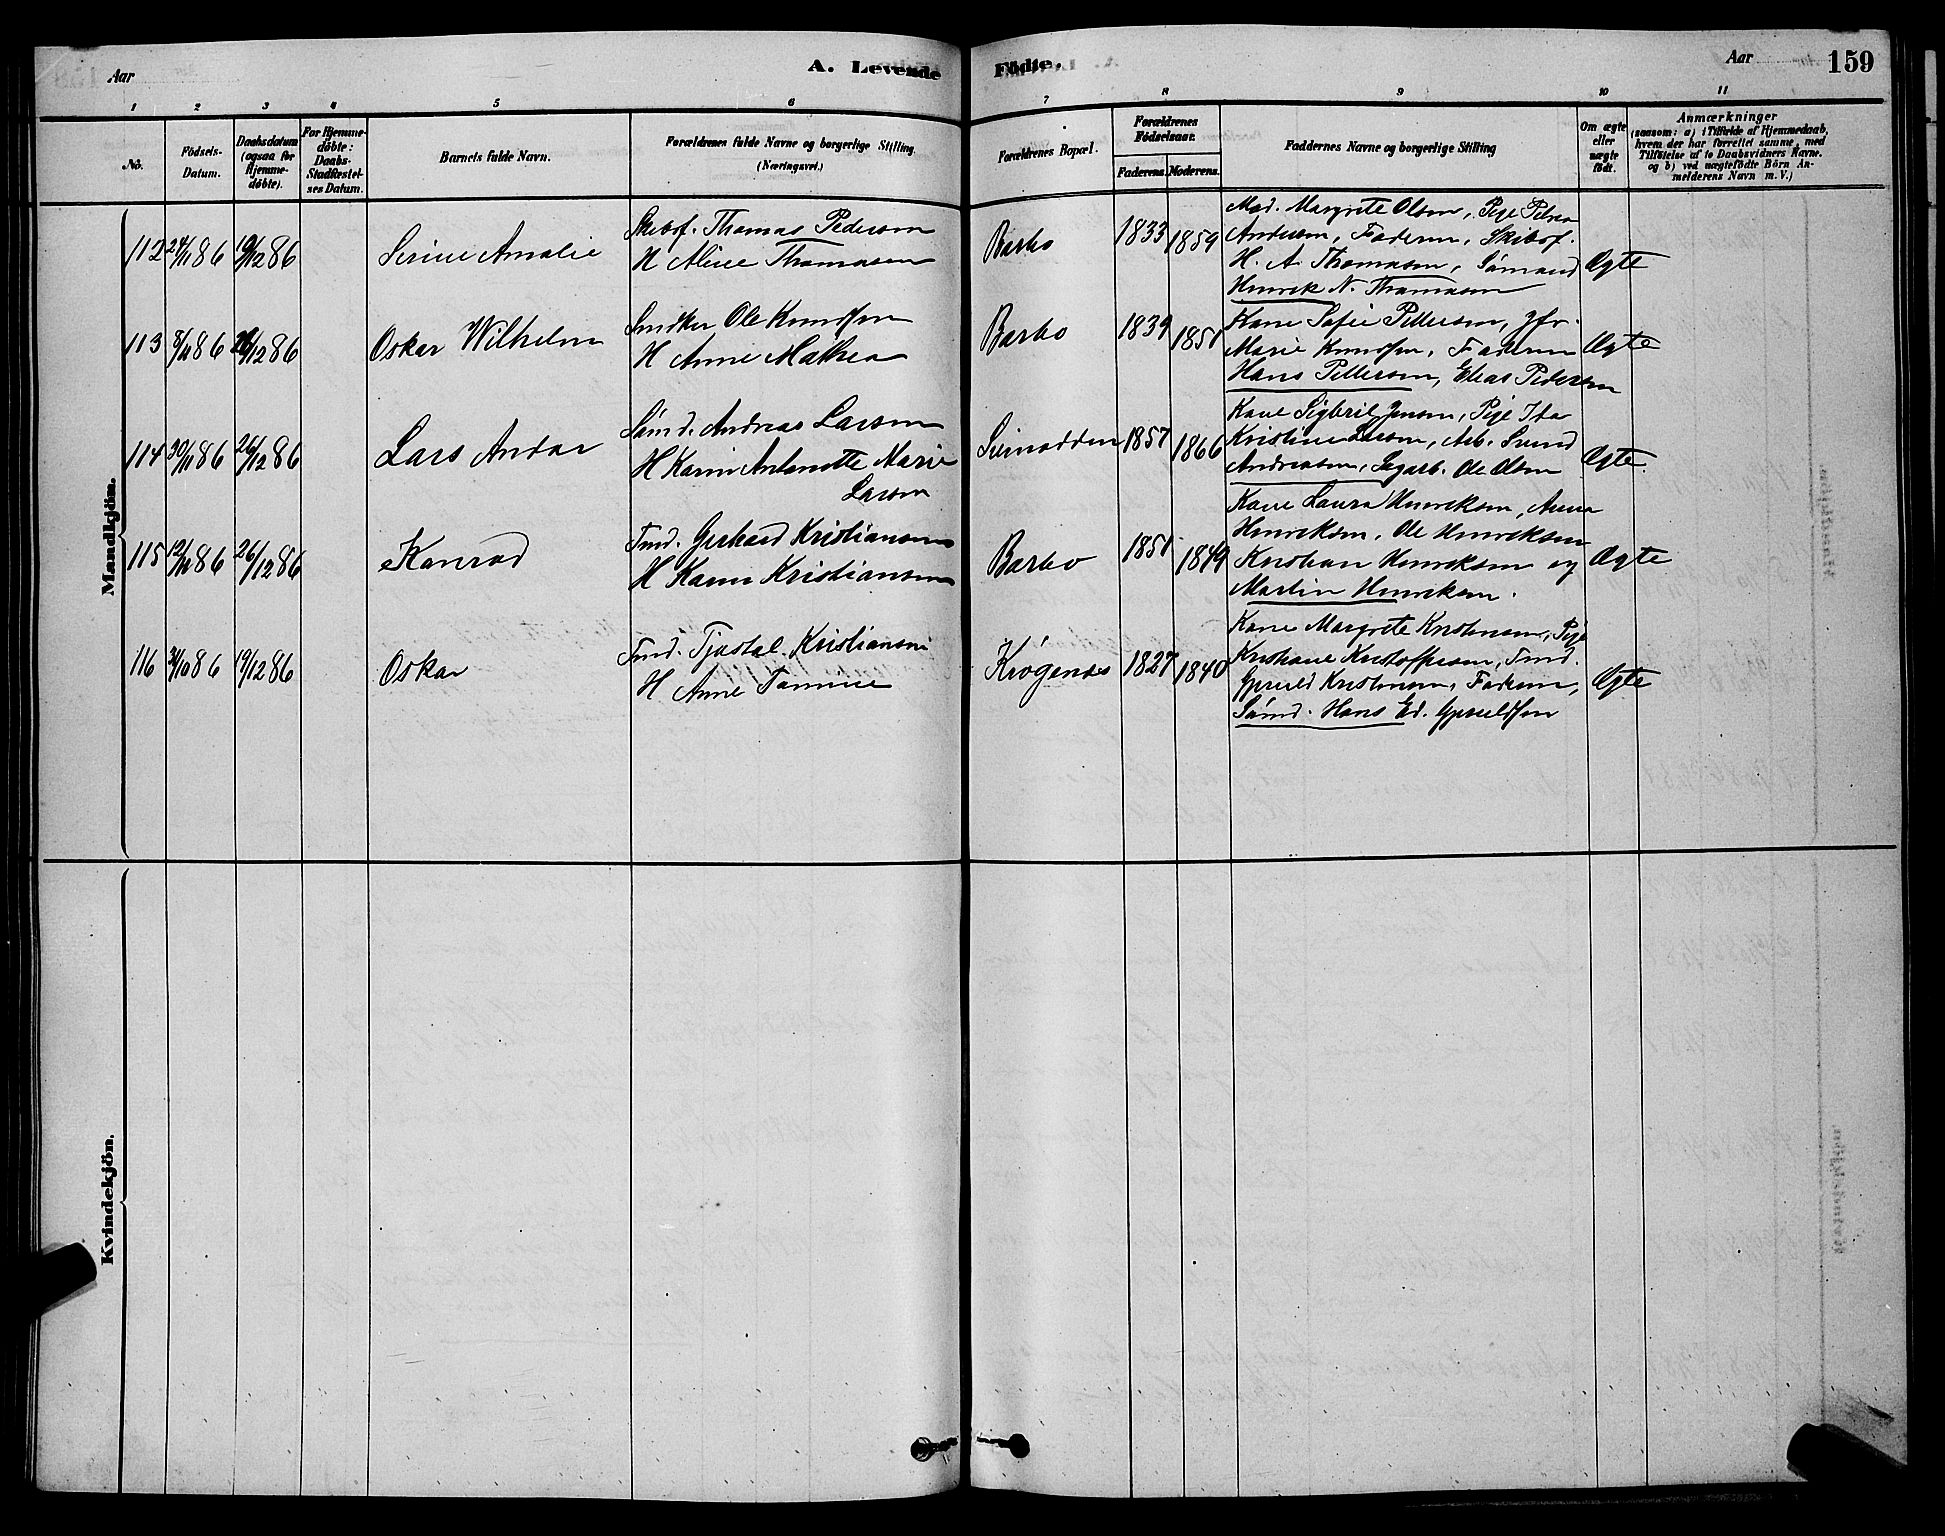 Aar
A. Levende Födte.
Aar
159
1 2 3 4 5 6 7 8 9 10 11
No.
Födsels-Datum.
Daabsdatum (ogsaa for Hjemmedöbte).
For Hjemmedöbte: Daabs-Stadfæstelses Datum.
Barnets fulde Navn.
Forældrenes fulde Navne og borgerlige Stilling
(Næringsvei.)
Forældrenes Bopæl.
Forældrenes Födselsaar.
Faderens. Moderens.
Faddernes Navne og borgerlige Stilling
Om ægte eller uægte födt.
Anmærkninger
(saasom: a) i Tilfælde af Hjemmedaab,
hvem der har forrettet samme, med
Tilföielse af to Daabsvidners Navne.
og b) ved uægtefödte Börn Anmelderens Navn m. V.)
Mandkjön.
112 24/11 86 19/12 86 Serine Amalie
Skibsf. Thomas Pederson
H Aline Thomasen
Barbo 1833 1859
Mad. Margrete Olsen, Pige Petrea
Andersen, Faderen, Skibsf.
H. A. Thomasen, Sømand
Henrik N. Thomasen
Ægte
113 86 26/12 86 Oskar Wilhelm
Snidker Ole Knudsen
H Anne Mathea
Barbo 1839 1851
Kone Sofie Pettersen, Jfr.
Marie Knudsen, Faderen
Hans Pettersen, Elias Pedersen
Ægte
114 20/11 86 26/12 86 Lars Andor
Sømd. Andreas Larsen
H Karin Antonette Marie
Larsen
1857 1866
Kone Sigbril Jensen, Pige Ida
Kristine Larsen, Arb. Svend
Andreasen, Ole Olsen
Ægte.
115 12/11 86 26/12 86 Konrad
Tmd. Gerhard Kristiansen
H Karen Kristiansen
Barbo 1851 1849
Kone Laura Henriksen, Anna
Henriksen, Ole Henriksen
Kristian Henriksen og
Martin Henriksen.
Ægte
116 31/10 86 19/12 86 Oskar
Tmd. Tjøstal Kristiansen
H Anne Tomine
Krøgenes 1827 1840
Kone Margrete Kristensen, Pige
Kristiane Kristoffersen, Tmd.
Kristensen, Faderen,
Sømd. Hans Ed.
Ægte
Kvindekjön.